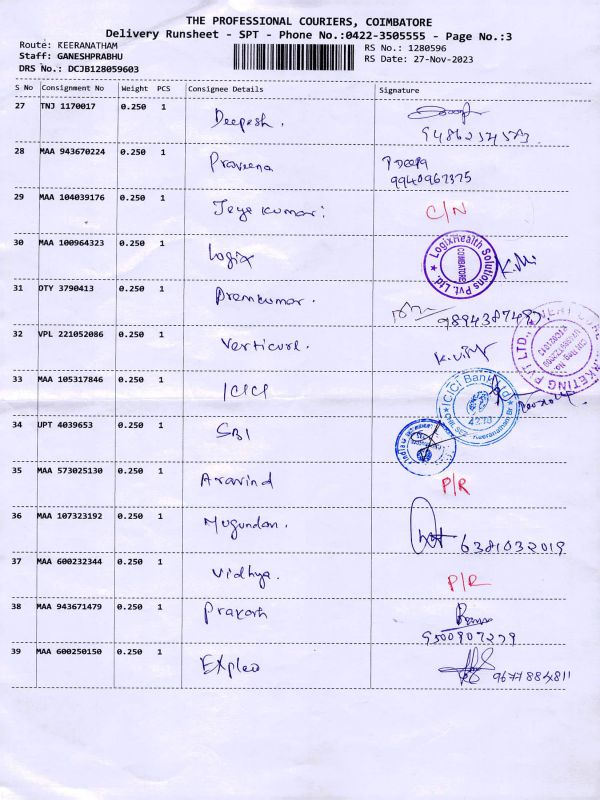 THE PROFESSIONAL COURIERS, COIMBATORE
Delivery Runsheet - SPT - Phone No.:0422-3505555 - Page No.:3
Route: KEERANATHAM
RS No.: 1280596
Staff: GANESHPRABHU
RS Date: 27-Nov-2023
DRS No.: DCJB128059603
S No Consignment No Weight PCS Consignee Details Signature
27 TNJ 1170017 0.250 1 Deepesh.
28 MAA 943670224 0.250 1 Praveena P Deepa
9940967375
29 MAA 104039176 0.250 1 Jeya kumar: C/N
30 MAA 100964323 0.250 1 Logix
LogixHealth Solutions Pvt. Ltd
COIMBATORE
31 DTY 3790413 0.250 1 Premkumar.
9894387487
32 VPL 221052086 0.250 1 Verticurl.
33 MAA 105317846 0.250 1 ICICI
ICICI Bank Ltd
34 UPT 4039653 0.250 1 SBI
35 MAA 573025130 0.250 1 Aravind P/R
36 MAA 107323192 0.250 1 Mugundan. 6381032019
37 MAA 600232344 0.250 1 Vidhya. P/R
38 MAA 943671479 0.250 1 Prakash
9500907279
39 MAA 600250150 0.250 1 Expleo 9677884811